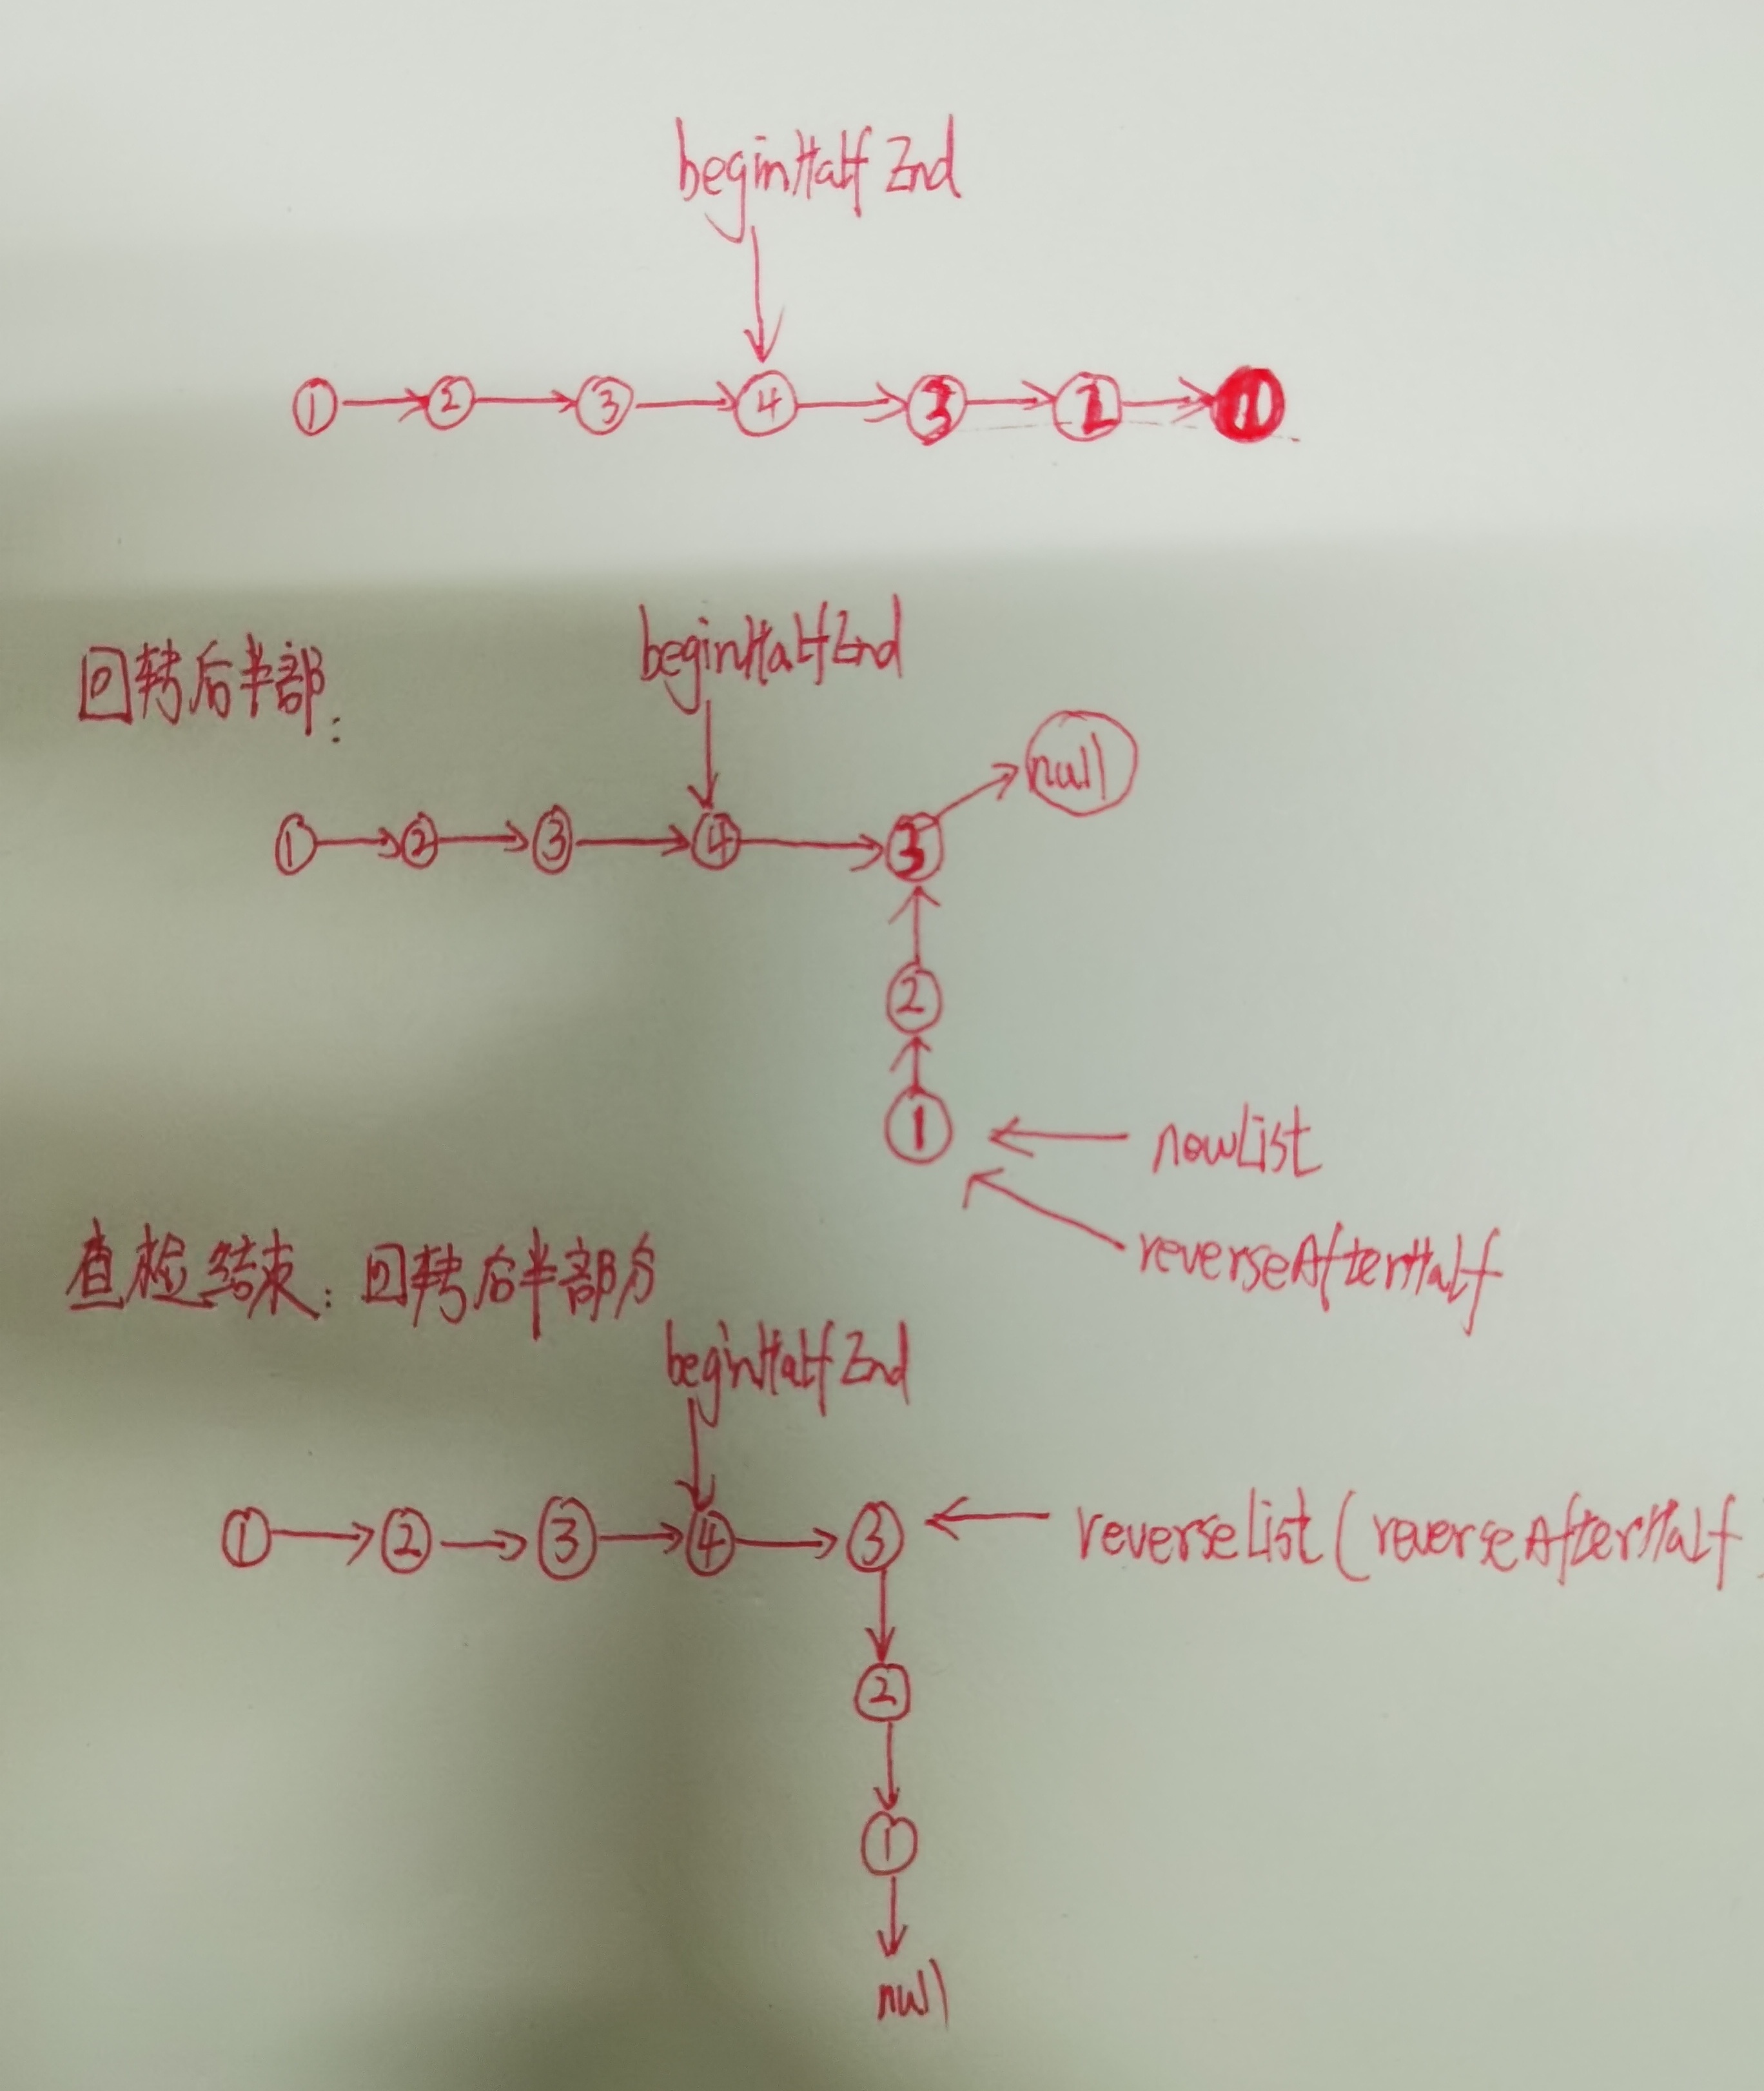 beginHalfEnd
1 2 3 4 3 2 1
回转后半部:
beginHalfEnd
null
1 2 3 4 3
2
1
nowList
reverseAfterHalf
查检结束: 回转后半部分
beginHalfEnd
1 2 3 4 3 reverseList(reverseAfterHalf
2
1
null